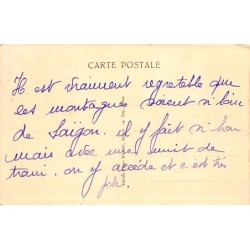 CARTE POSTALE
Il est vraiment regretable que
les montagnes soient si loin
de Saïgon. il y fait si bon
mais avec une nuit de
train, on y accède et c'est très
joli.